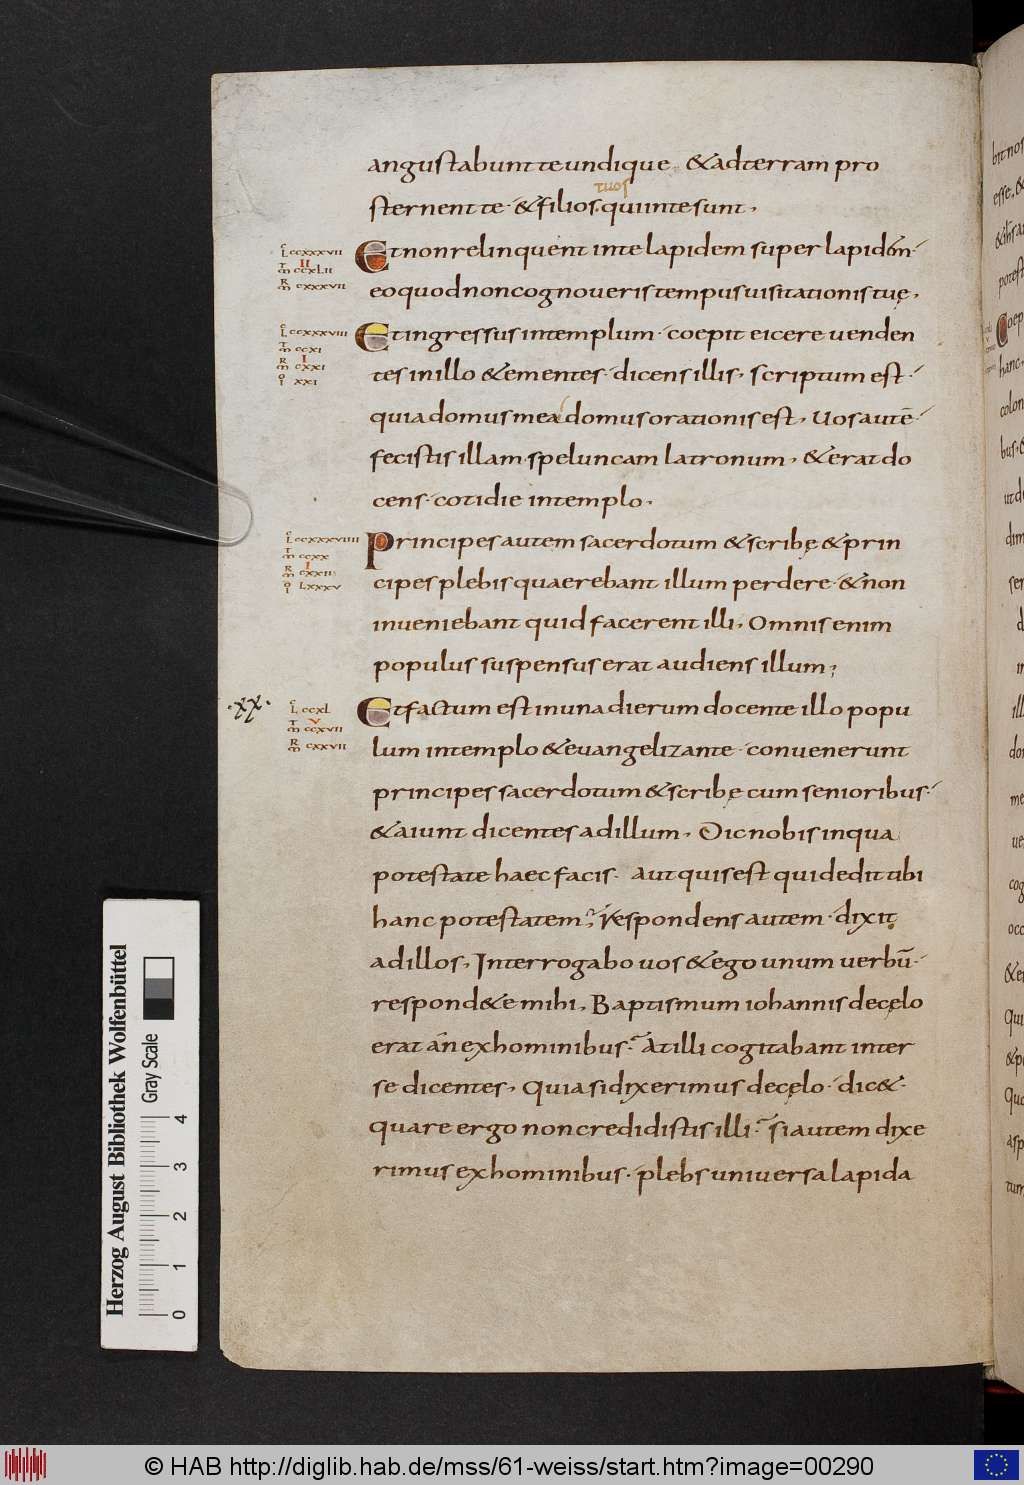 angustabunt te undique. & ad terram pro
tuos
sternent te· & filios. qui in te sunt,
L CCXXXVII
II
M CCXLII
M CXXXVII
Et non relinquent in te lapidem super lapidem·
eo quod non cognoveris tempus uisitationis tuę,
L CCXXXVIII
M CCXI
I
M CXXI
I XXI
Et ingressus in templum· coepit eicere uenden
tes in illo & ementes· dicens illis, scriptum est·
quia domus mea domus orationis est, Uos autē
fecistis illam speluncam latronum, & erat do
cens· cotidie in templo,
L CCXXXVIIII
M CCXX
I
M CXXII
I LXXXV
Principes autem sacerdotum & scribę & prin
cipes plebis quaerebant illum perdere· & non
inveniebant quid facerent illi, Omnis enim
populus suspensus erat audiens illum;
·XX·
L CCXL
V
M CCXVII
M CXXVII
Et factum est in una dierum docente illo popu
lum in templo & euangelizante· convenerunt
principes sacerdotum & scribę cum senioribus·
& aiunt dicentes ad illum, Dic nobis in qua
potestate haec facis· aut quis est qui dedit tibi
hanc potestatem; Respondens autem· dixit
ad illos, Interrogabo uos & ego unum uerbū·
respond&e mihi, Baptismum iohannis de cęlo
erat an ex hominibus· At illi cogitabant inter
se dicentes, Quia si dixerimus de cęlo· dic&·
quare ergo non credidistis illi· si autem dixe
rimus ex hominibus· plebs universa lapida
Herzog August Bibliothek Wolfenbüttel
Gray Scale
0 1 2 3 4
© HAB http://diglib.hab.de/mss/61-weiss/start.htm?image=00290